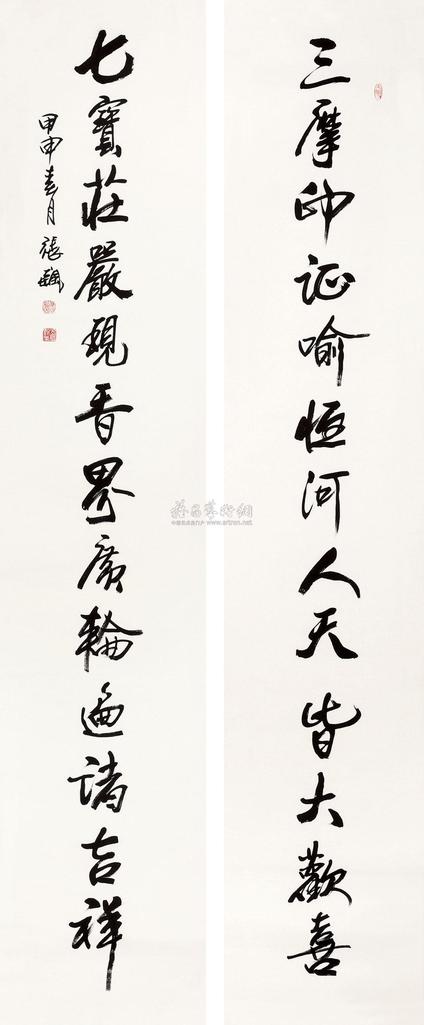 三摩印证喻恒河人天皆大歡喜
七寶莊嚴現香界廣輪遍諸吉祥
甲申春月 張
雅昌藝術網
www.artron.net